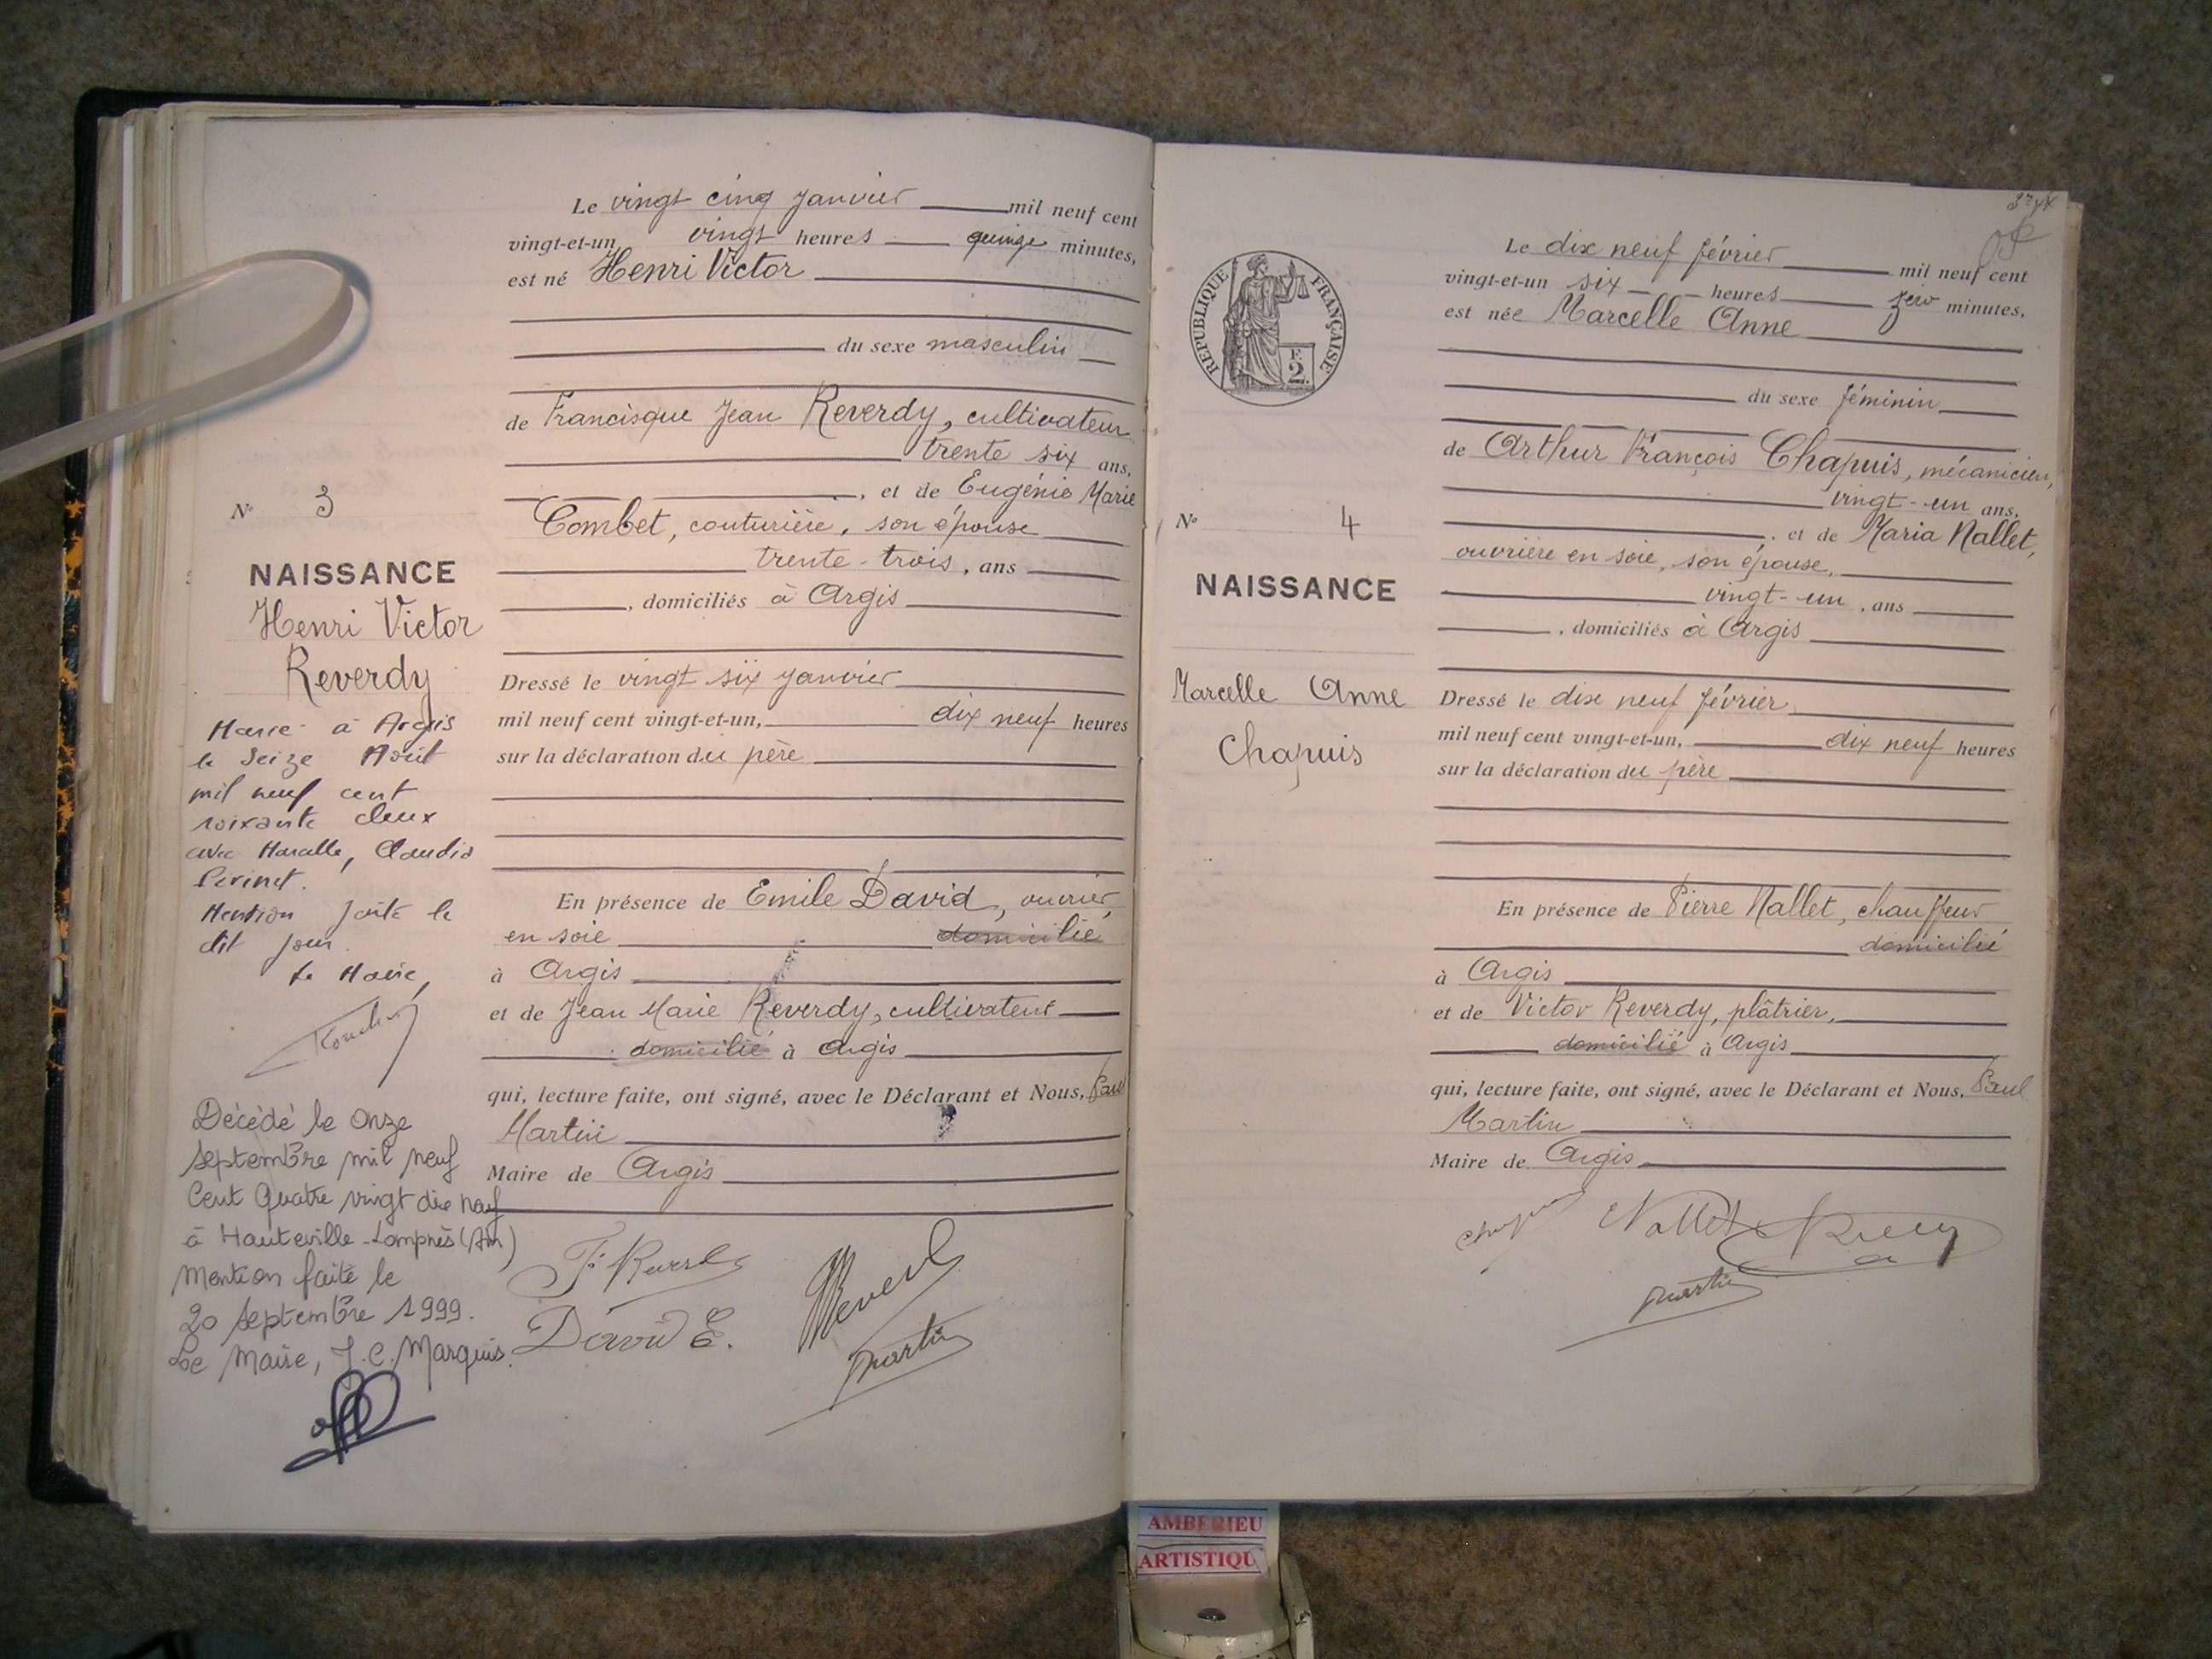 Le vingt cinq janvier mil neuf cent
vingt-et-un, vingt heures quinze minutes,
est né Henri Victor
du sexe masculin
de Francisque Jean Reverdy, cultivateur
trente six ans,
, et de Eugénie Marie
Combet, couturière, son épouse
trente-trois, ans
, domiciliés à Argis
Dressé le vingt six janvier
mil neuf cent vingt-et-un, dix neuf heures
sur la déclaration du père
En présence de Emile David, ouvrier
en soie domicilié
à Argis
et de Jean Marie Reverdy, cultivateur
domicilié à Argis
qui, lecture faite, ont signé, avec le Déclarant et Nous, Paul
Martin
Maire de Argis
David E.
Martin
No 3
NAISSANCE
Henri Victor
Reverdy
Marié à Argis
le seize Août
mil neuf cent
soixante deux
avec Marcelle, Claudia
Perinet.
Mention faite le
dit jour.
Le Maire,
Décédé le onze
septembre mil neuf
cent quatre vingt dix neuf
à Hauteville-Lompnès (Ain)
Mention faite le
20 septembre 1999.
Le Maire, J.C. Marquis.
REPUBLIQUE FRANÇAISE
F.
2.
Le dix neuf février mil neuf cent
vingt-et-un six heures zéro minutes,
est née Marcelle Anne
du sexe féminin
de Arthur François Chapuis, mécanicien,
vingt-un ans,
, et de Maria Nallet,
ouvrière en soie, son épouse,
vingt-un, ans
, domiciliés à Argis
Dressé le dix neuf février
mil neuf cent vingt-et-un, dix neuf heures
sur la déclaration du père
En présence de Pierre Nallet, chauffeur
domicilié
à Argis
et de Victor Reverdy, plâtrier,
domicilié à Argis
qui, lecture faite, ont signé, avec le Déclarant et Nous, Paul
Martin
Maire de Argis
Chapuis Nallet
Martin
No 4
NAISSANCE
Marcelle Anne
Chapuis
AMBERIEU
ARTISTIQU